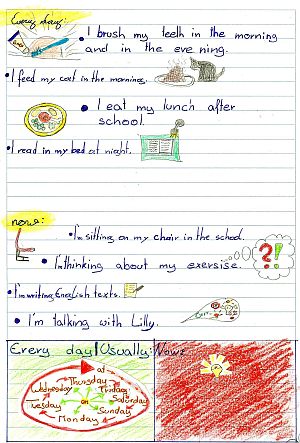 Every day:
• I brush my teeth in the morning
and in the evening.
• I feed my cat in the morning.
• I eat my lunch after
school.
• I read in my bed at night.
now:
• I'm sitting on my chair in the school.
• I'm thinking about my exersise.
?!
• I'm writing English texts.
• I'm talking with Lilly.
Every day/Usually:
Now:
at
Thursday
Wednesday
Friday
Tuesday
on
Saturday
Sunday
Monday